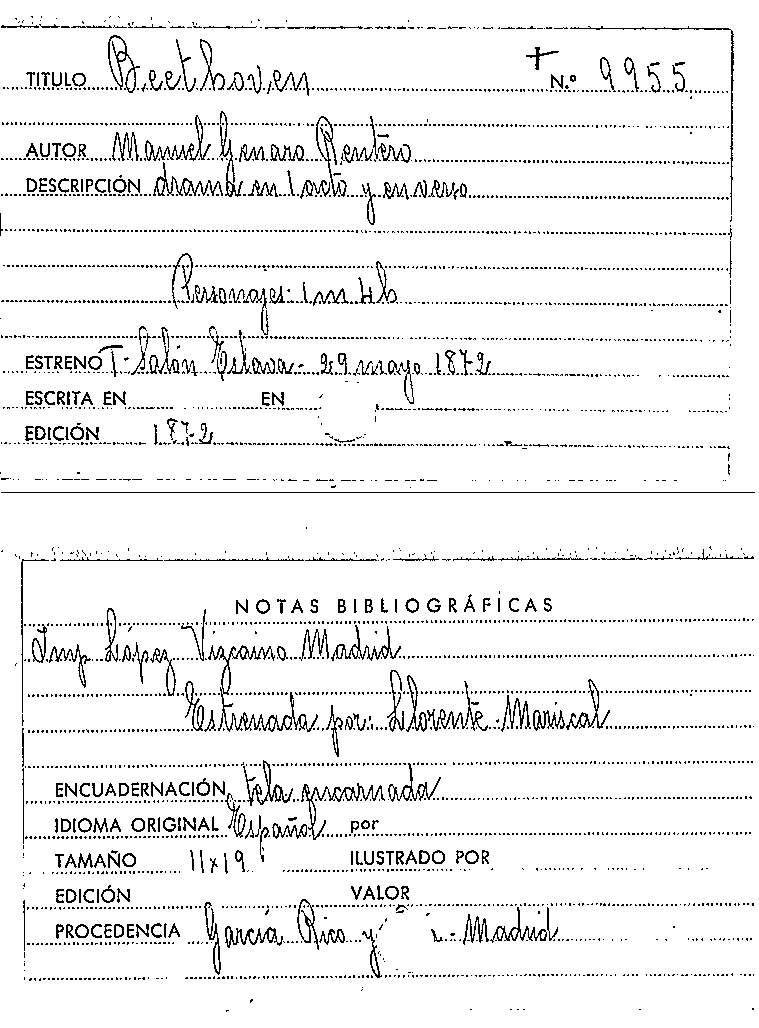 TITULO Beethoven + N.º 9955
AUTOR Manuel Genaro Rentero
DESCRIPCIÓN drama en 1 acto y en verso
Personajes: 1 m 4 h
ESTRENO T- Salón Eslava - 29 mayo 1872
ESCRITA EN EN
EDICIÓN 1872
NOTAS BIBLIOGRÁFICAS
Imp López Vizcaino Madrid
Estrenada por: Llorente - Mariscal
ENCUADERNACIÓN tela encarnada
IDIOMA ORIGINAL Español por
TAMAÑO 11x19 ILUSTRADO POR
EDICIÓN VALOR
PROCEDENCIA García Rico y - Madrid